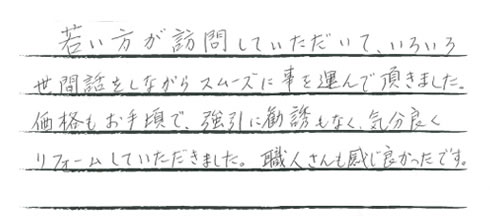 若い方が訪問していただいて、いろいろ
世間話をしながらスムーズに事を運んで頂きました。
価格もお手頃で、強引に勧誘もなく、気分良く
リフォームしていただきました。職人さんも感じ良かったです。